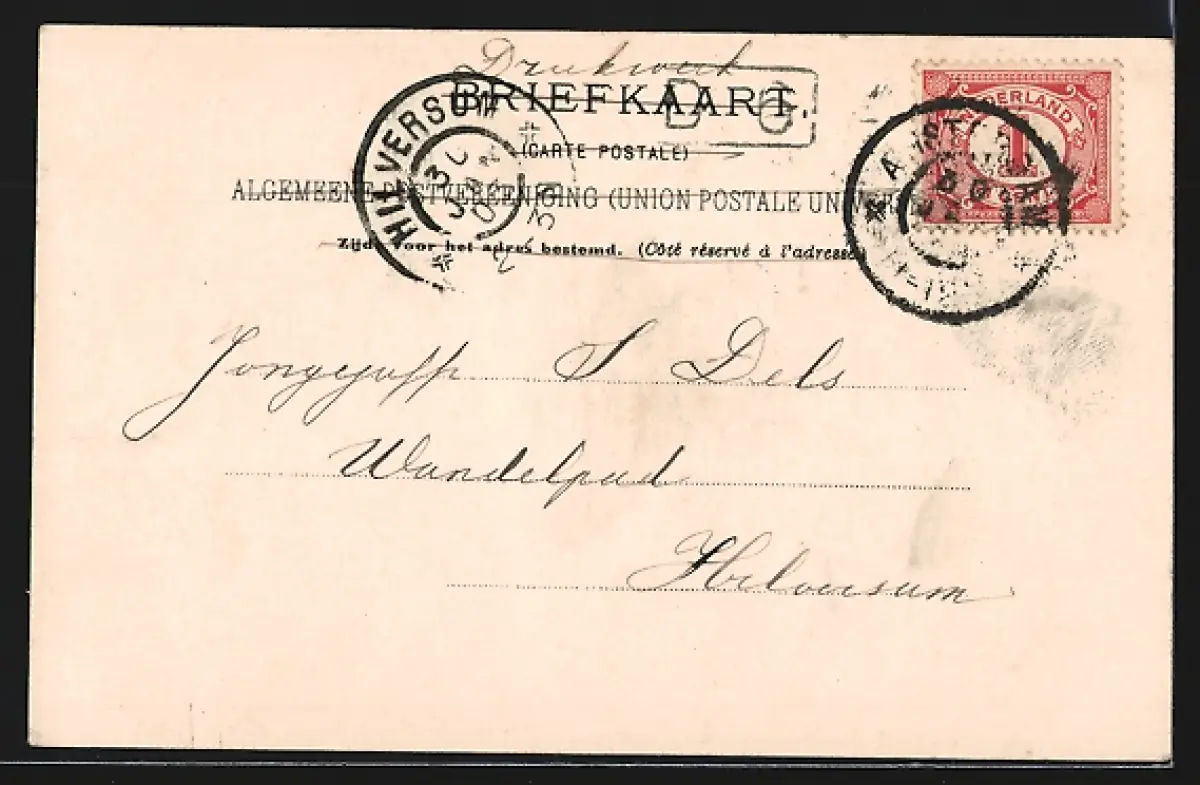 Drukwerk
BRIEFKAART.
(CARTE POSTALE)
ALGEMEENE POSTVEREENIGING (UNION POSTALE UNIVER
Zijde voor het adres bestemd. (Côté réservé à l'adresse
HILVERSUM
NEDERLAND
1
Jongejuff S Dels
Wandelpad
Hilversum